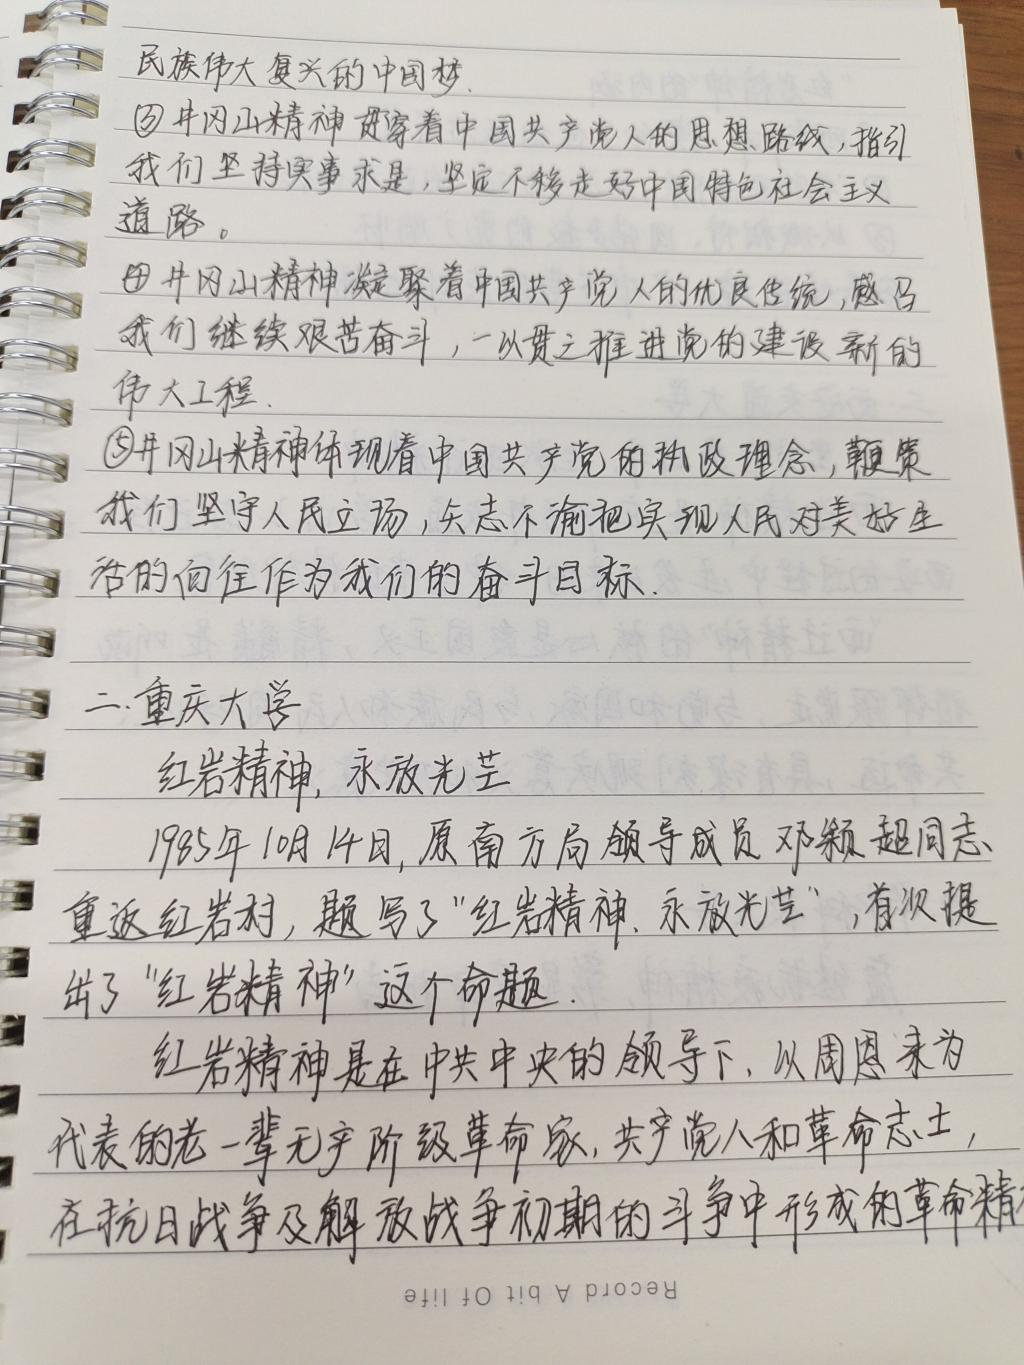 民族伟大复兴的中国梦.
③井冈山精神贯穿着中国共产党人的思想路线,指引
我们坚持实事求是,坚定不移走好中国特色社会主义
道路。
④井冈山精神凝聚着中国共产党人的优良传统,感召
我们继续艰苦奋斗,一以贯之推进党的建设新的
伟大工程.
⑤井冈山精神体现着中国共产党的执政理念,鞭策
我们坚守人民立场,矢志不渝把实现人民对美好生
活的向往作为我们的奋斗目标.
二.重庆大学
红岩精神,永放光芒
1985年10月14日,原南方局领导成员邓颖超同志
重返红岩村,题写了“红岩精神.永放光芒”,首次提
出了“红岩精神”这个命题.
红岩精神是在中共中央的领导下,以周恩来为
代表的老一辈无产阶级革命家,共产党人和革命志士,
在抗日战争及解放战争初期的斗争中形成的革命精
Record A bit Of life